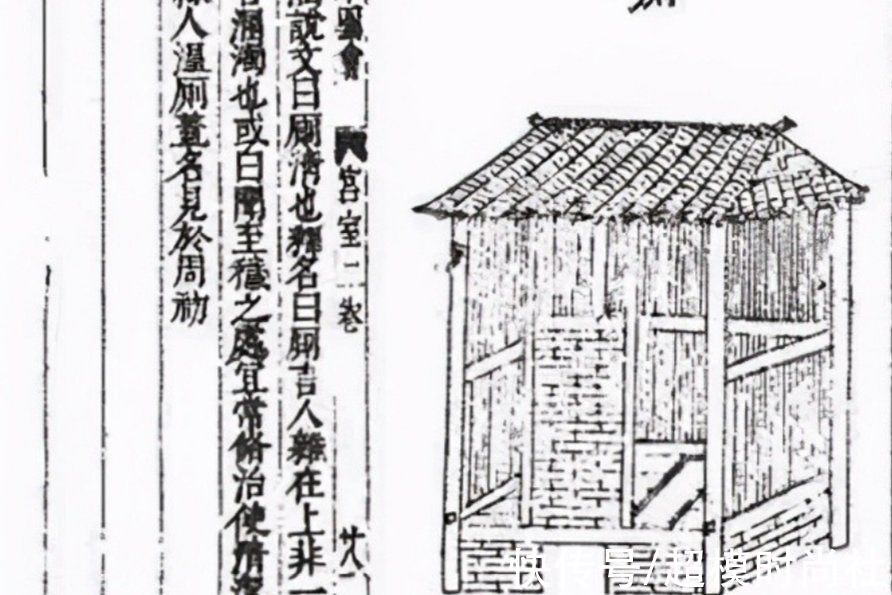 圖會 宮室二卷 廿八
說文曰廁清也釋名曰廁言人雜在上非一
溷濁也或曰圊至穢之處宜常脩治使清潔
人湼廁蓋名見於周初
快传号/超模时尚社